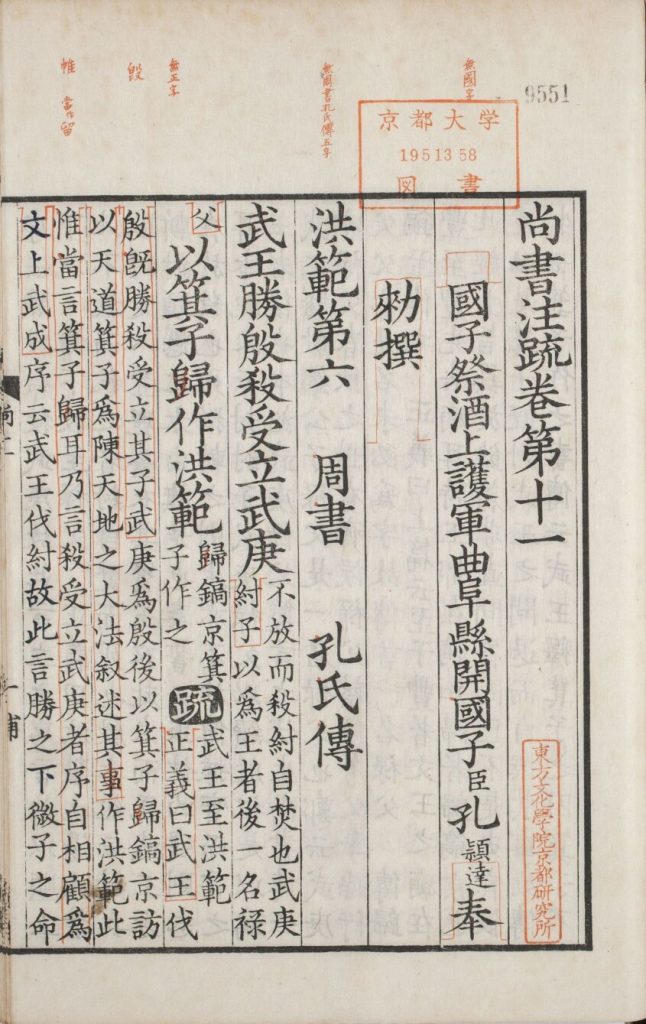 9551
京都大学
1951358
図書
無國字
無周書孔氏傳五字
無正字
毁
惟 當作留
尚書注䟽卷第十一
國子祭酒上護軍曲阜縣開國子臣孔穎達奉
勑撰
洪範第六 周書 孔氏傳
武王勝殷殺受立武庚
不放而殺紂自焚也武庚
紂子以爲王者後一名祿
父
以箕子歸作洪範
歸鎬京箕
子作之
䟽
武王至洪範
正義曰武王伐
殷旣勝殺受立其子武庚爲殷後以箕子歸鎬京訪
以天道箕子爲陳天地之大法叙述其事作洪範此
惟當言箕子歸耳乃言殺受立武庚者序自相顧爲
文上武成序云武王伐紂故此言勝之下微子之命
東方文化學院京都研究所